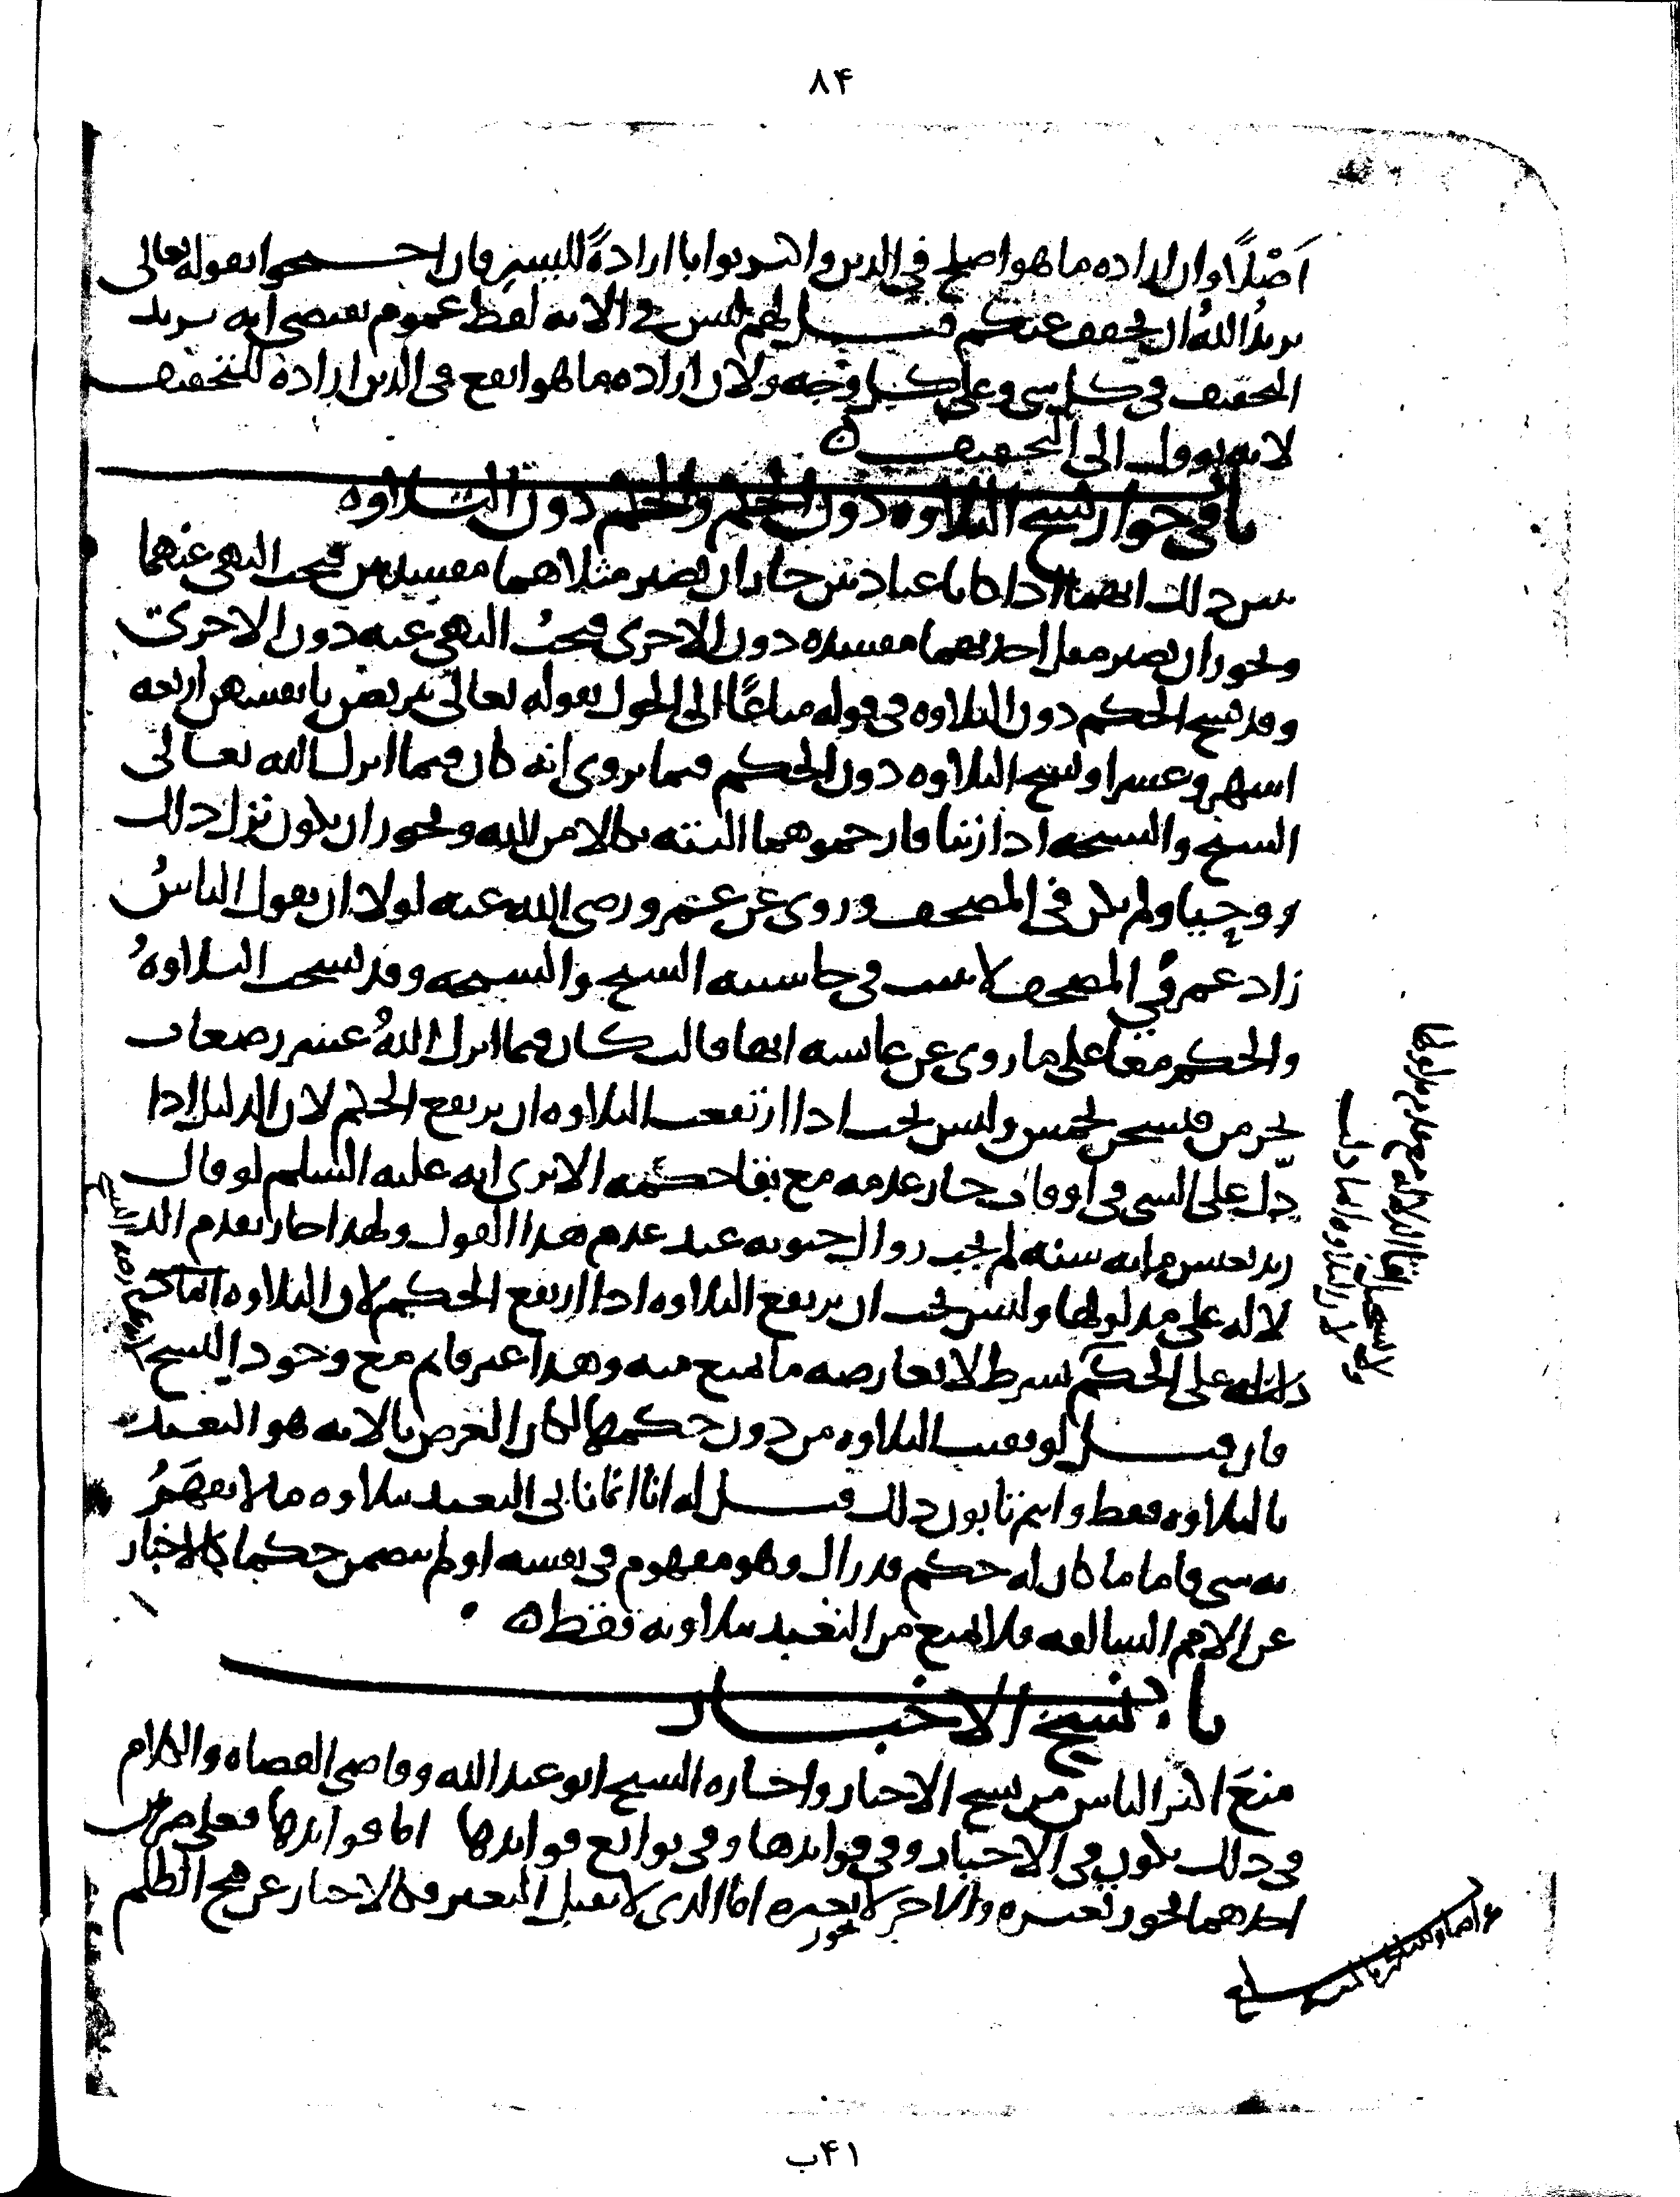 ٨۴
اَصْلًا وان اراده ما هو اصلح فى الدين واكثر ثوابا ارادةً لليسر فان احتجوا بقوله تعالى
يريدُ اللهُ ان يخفف عنكم قيل لهم ليس فى الايه لفظ عموم يقتضى انه يريد
التخفيف فى كل شى وعلى كل وجه ولان اراده ما هو انفع فى الدين ارادة للتخفيف
لانه يوول الى التخفيف ه
باب فى جواز نسخ التلاوه دون الحكم والحكم دون التلاوه
دلك انهما اذا كانا عبادتين جاز ان يصير مثلاهما مفسدتين فيجب النهى عنهما
ويجوز ان يصير مثل احديهما مفسده دون الاخرى فيجبُ النهى عنه دون الاخرى
وقد نسخ الحكم دون التلاوه فى قوله متاعًا الى الحول بقوله تعالى يتربصن بانفسهن اربعه
اشهر وعشرا ونسخ التلاوه دون الحكم فيما يروى انه كان فيما انزل الله تعالى
الشيخ والشيخه اذا زنيا فارجموهما البته نكالا من الله ويجوز ان يكون نزل ذلك
وحيا ولم يكن فى المصحف وروى عن عمر رضى الله عنه لولا ان يقول الناسُ
زاد عمر فى المصحف لاثبت فى حاشيته الشيخ والشيخه وقد نسخت التلاوهُ
والحكم معا على ما روى عن عايشه انها قالت كان فيما انزل اللهُ عشر رضعات
يحرمن فنسخن بخمس وليس يجب اذا ارتفعت التلاوه ان يرتفع الحكم لان الدليل اذا
دلّ على الشى فى اوقات جاز عدمه مع بقا حكمه الا ترى انه عليه السلم لو قال
زيد يعيش مايه سنه لم يجب زوال حيوته عند عدم هذا القول ولهذا جاز تقدم الد
لاله على مدلولها وليس يجب ان يرتفع التلاوه اذا ارتفع الحكم لان التلاوه انما
دلاله على الحكم بشرط الا يعارضه ما يمنع منه وهذا غير قايم مع وجود النسخ
فان قيل لو بقيت التلاوه من دون حكمها لكان الغرض بالايه هو التعبد
بالتلاوه فقط وانتم تابون ذلك قيل له انا انما نابى التعبد بتلاوه ما لا يفهَمُ
به شى فاما ما كان له حكم قد زال وهو مفهوم فى نفسه او لم يتضمن حكما كالاخبار
عن الامم السالفه فلا يمتنع من التعبد بتلاوته فقط ه
باب نسخ الاخبار
منعَ اكثر الناس من نسخ الاخبار واختاره الشيخ ابو عبد الله وقاضى القضاه والكلام
فى ذلك يكون فى الاخبار وفى فوايدها وفى توابع فوايدها اما فوايدها فعلى ضربين
احدهما يجوز تغييره والاخر لا يجوز تغيره اما الذى لا يقبل التغيير فكالاخبار عن قبح الظلم
۴١ب